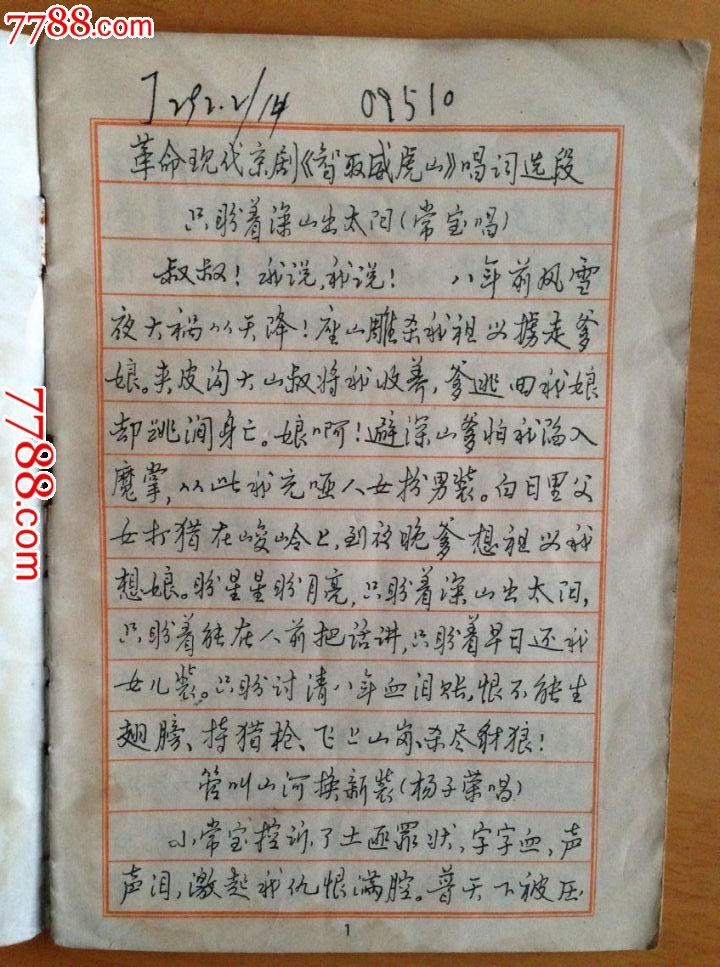 7788.com
J292.2/14 09510
革命现代京剧《智取威虎山》唱词选段
只盼着深山出太阳(常宝唱)
叔叔!我说,我说! 八年前风雪
夜大祸从天降!座山雕杀我祖父掳走爹
娘。夹皮沟大山叔将我收养,爹逃回我娘
却跳涧身亡。娘啊!避深山爹怕我陷入
魔掌,从此我充哑人女扮男装。白日里父
女打猎在峻岭上,到夜晚爹想祖父我
想娘。盼星星盼月亮,只盼着深山出太阳,
只盼着能在人前把话讲,只盼着早日还我
女儿装。只盼讨清八年血泪账,恨不能生
翅膀、持猎枪、飞上山岗、杀尽豺狼!
管叫山河换新装(杨子荣唱)
小常宝控诉了土匪罪状,字字血,声
声泪,激起我仇恨满腔。普天下被压
1
7788.com